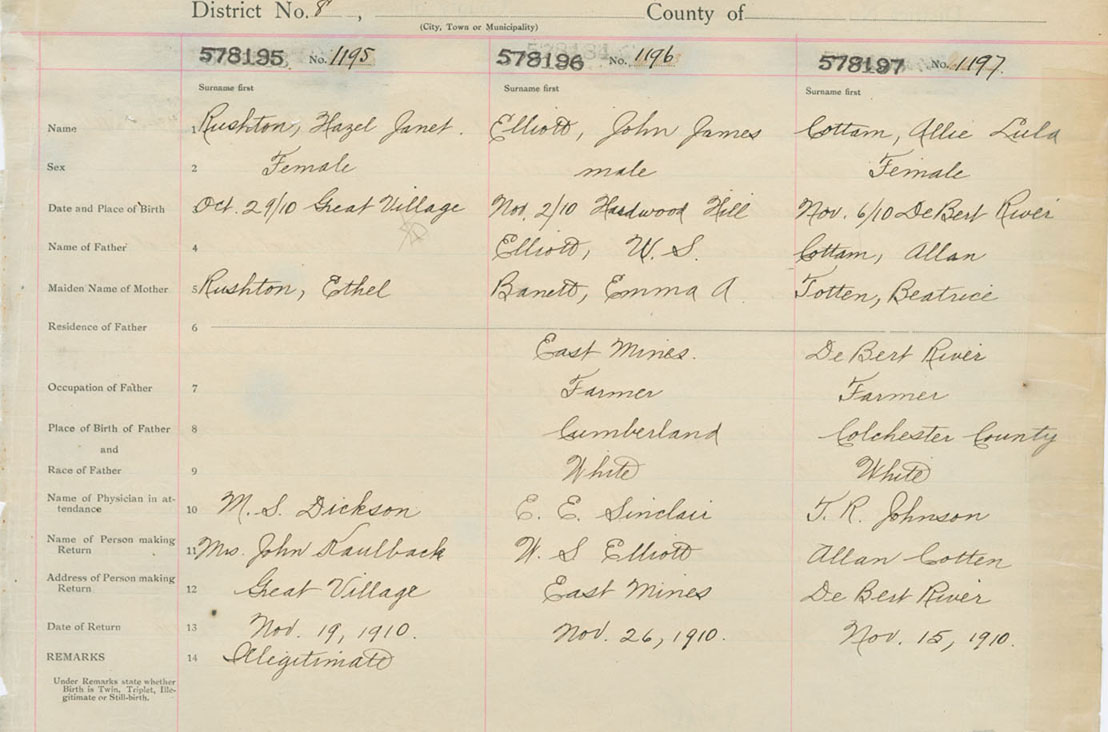 District No. 8 , County of
(City, Town or Municipality)
578195 No. 1195 578196 No. 1196 578197 No. 1197.
Surname first Surname first Surname first
Name 1 Rushton, Hazel Janet. Elliott, John James Cottam, Allie Lula
Sex 2 Female male Female
Date and Place of Birth 3 Oct. 29/10 Great Village Nov. 2/10 Hardwood Hill Nov. 6/10 DeBert River
Name of Father 4 Elliott, W. S. Cottam, Allan
Maiden Name of Mother 5 Rushton, Ethel Barrett, Emma A. Totten, Beatrice
Residence of Father 6
East Mines. DeBert River
Occupation of Father 7 Farmer Farmer
Place of Birth of Father 8 Cumberland Colchester County
and
Race of Father 9 White White
Name of Physician in at-
tendance 10 M. S. Dickson E. E. Sinclair T. R. Johnson
Name of Person making
Return 11 Mrs. John Kaulback W. S Elliott Allan Cotten
Address of Person making
Return 12 Great Village East Mines De Bert River
Date of Return 13 Nov. 19, 1910. Nov. 26, 1910. Nov. 15, 1910.
REMARKS 14 Illegitimate
Under Remarks state whether
Birth is Twin, Triplet, Ille-
gitimate or Still-birth.